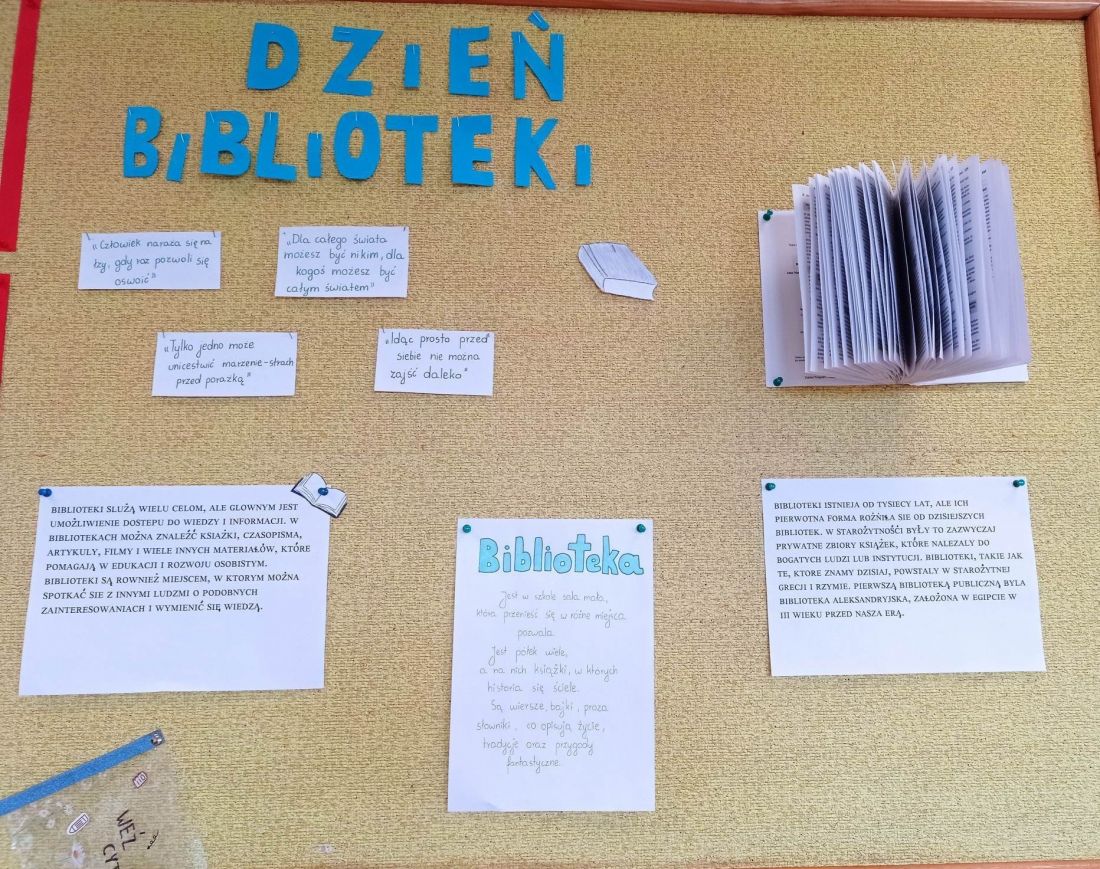 DZIEŃ
BIBLIOTEKI
„Człowiek naraża się na
łzy, gdy raz pozwoli się
oswoić”
„Dla całego świata
możesz być nikim, dla
kogoś możesz być
całym światem”
„Tylko jedno może
unicestwić marzenie-strach
przed porażką”
„Idąc prosto przed
siebie nie można
zajść daleko”
BIBLIOTEKI SŁUŻĄ WIELU CELOM, ALE GŁOWNYM JEST
UMOŻLIWIENIE DOSTEPU DO WIEDZY I INFORMACJI. W
BIBLIOTEKACH MOŻNA ZNALEŹĆ KSIAŻKI, CZASOPISMA,
ARTYKULY, FILMY I WIELE INNYCH MATERIAŁÓW, KTÓRE
POMAGAJĄ W EDUKACJI I ROZWOJU OSOBISTYM.
BIBLIOTEKI SĄ ROWNIEŻ MIEJSCEM, W KTORYM MOŻNA
SPOTKAĆ SIE Z INNYMI LUDZMI O PODOBNYCH
ZAINTERESOWANIACH I WYMIENIĆ SIĘ WIEDZĄ.
Biblioteka
Jest w szkole sala mała,
która przenieść się w różne miejsca
pozwala.
Jest półek wiele,
a na nich książki, w których
historia się ściele.
Są wiersze, bajki, proza
słowniki, co opisują życie,
tradycje oraz przygody
fantastyczne.
BIBLIOTEKI ISTNIEJA OD TYSIECY LAT, ALE ICH
PIERWOTNA FORMA ROŻNIŁA SIE OD DZISIEJSZYCH
BIBLIOTEK. W STAROŻYTNOŚCI BYŁY TO ZAZWYCZAJ
PRYWATNE ZBIORY KSIĄŻEK, KTÓRE NALEZALY DO
BOGATYCH LUDZI LUB INSTYTUCJI. BIBLIOTEKI, TAKIE JAK
TE, KTORE ZNAMY DZISIAJ, POWSTALY W STAROŻYTNEJ
GRECJI I RZYMIE. PIERWSZĄ BIBLIOTEKĄ PUBLICZNĄ BYLA
BIBLIOTEKA ALEKSANDRYJSKA, ZAŁOŻONA W EGIPCIE W
III WIEKU PRZED NASZA ERĄ.
WEŹ